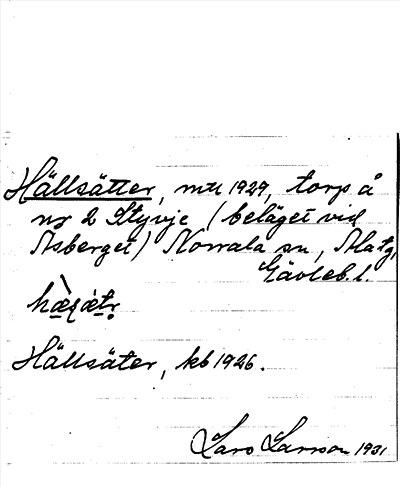 Hällsätter, mtl 1929, torp å
nr 2 Styvje (beläget vid
Åsberget) Norrala sn,
Gävleb. l.
Hällsäter, kb 1926.
Lars Larsson 1931